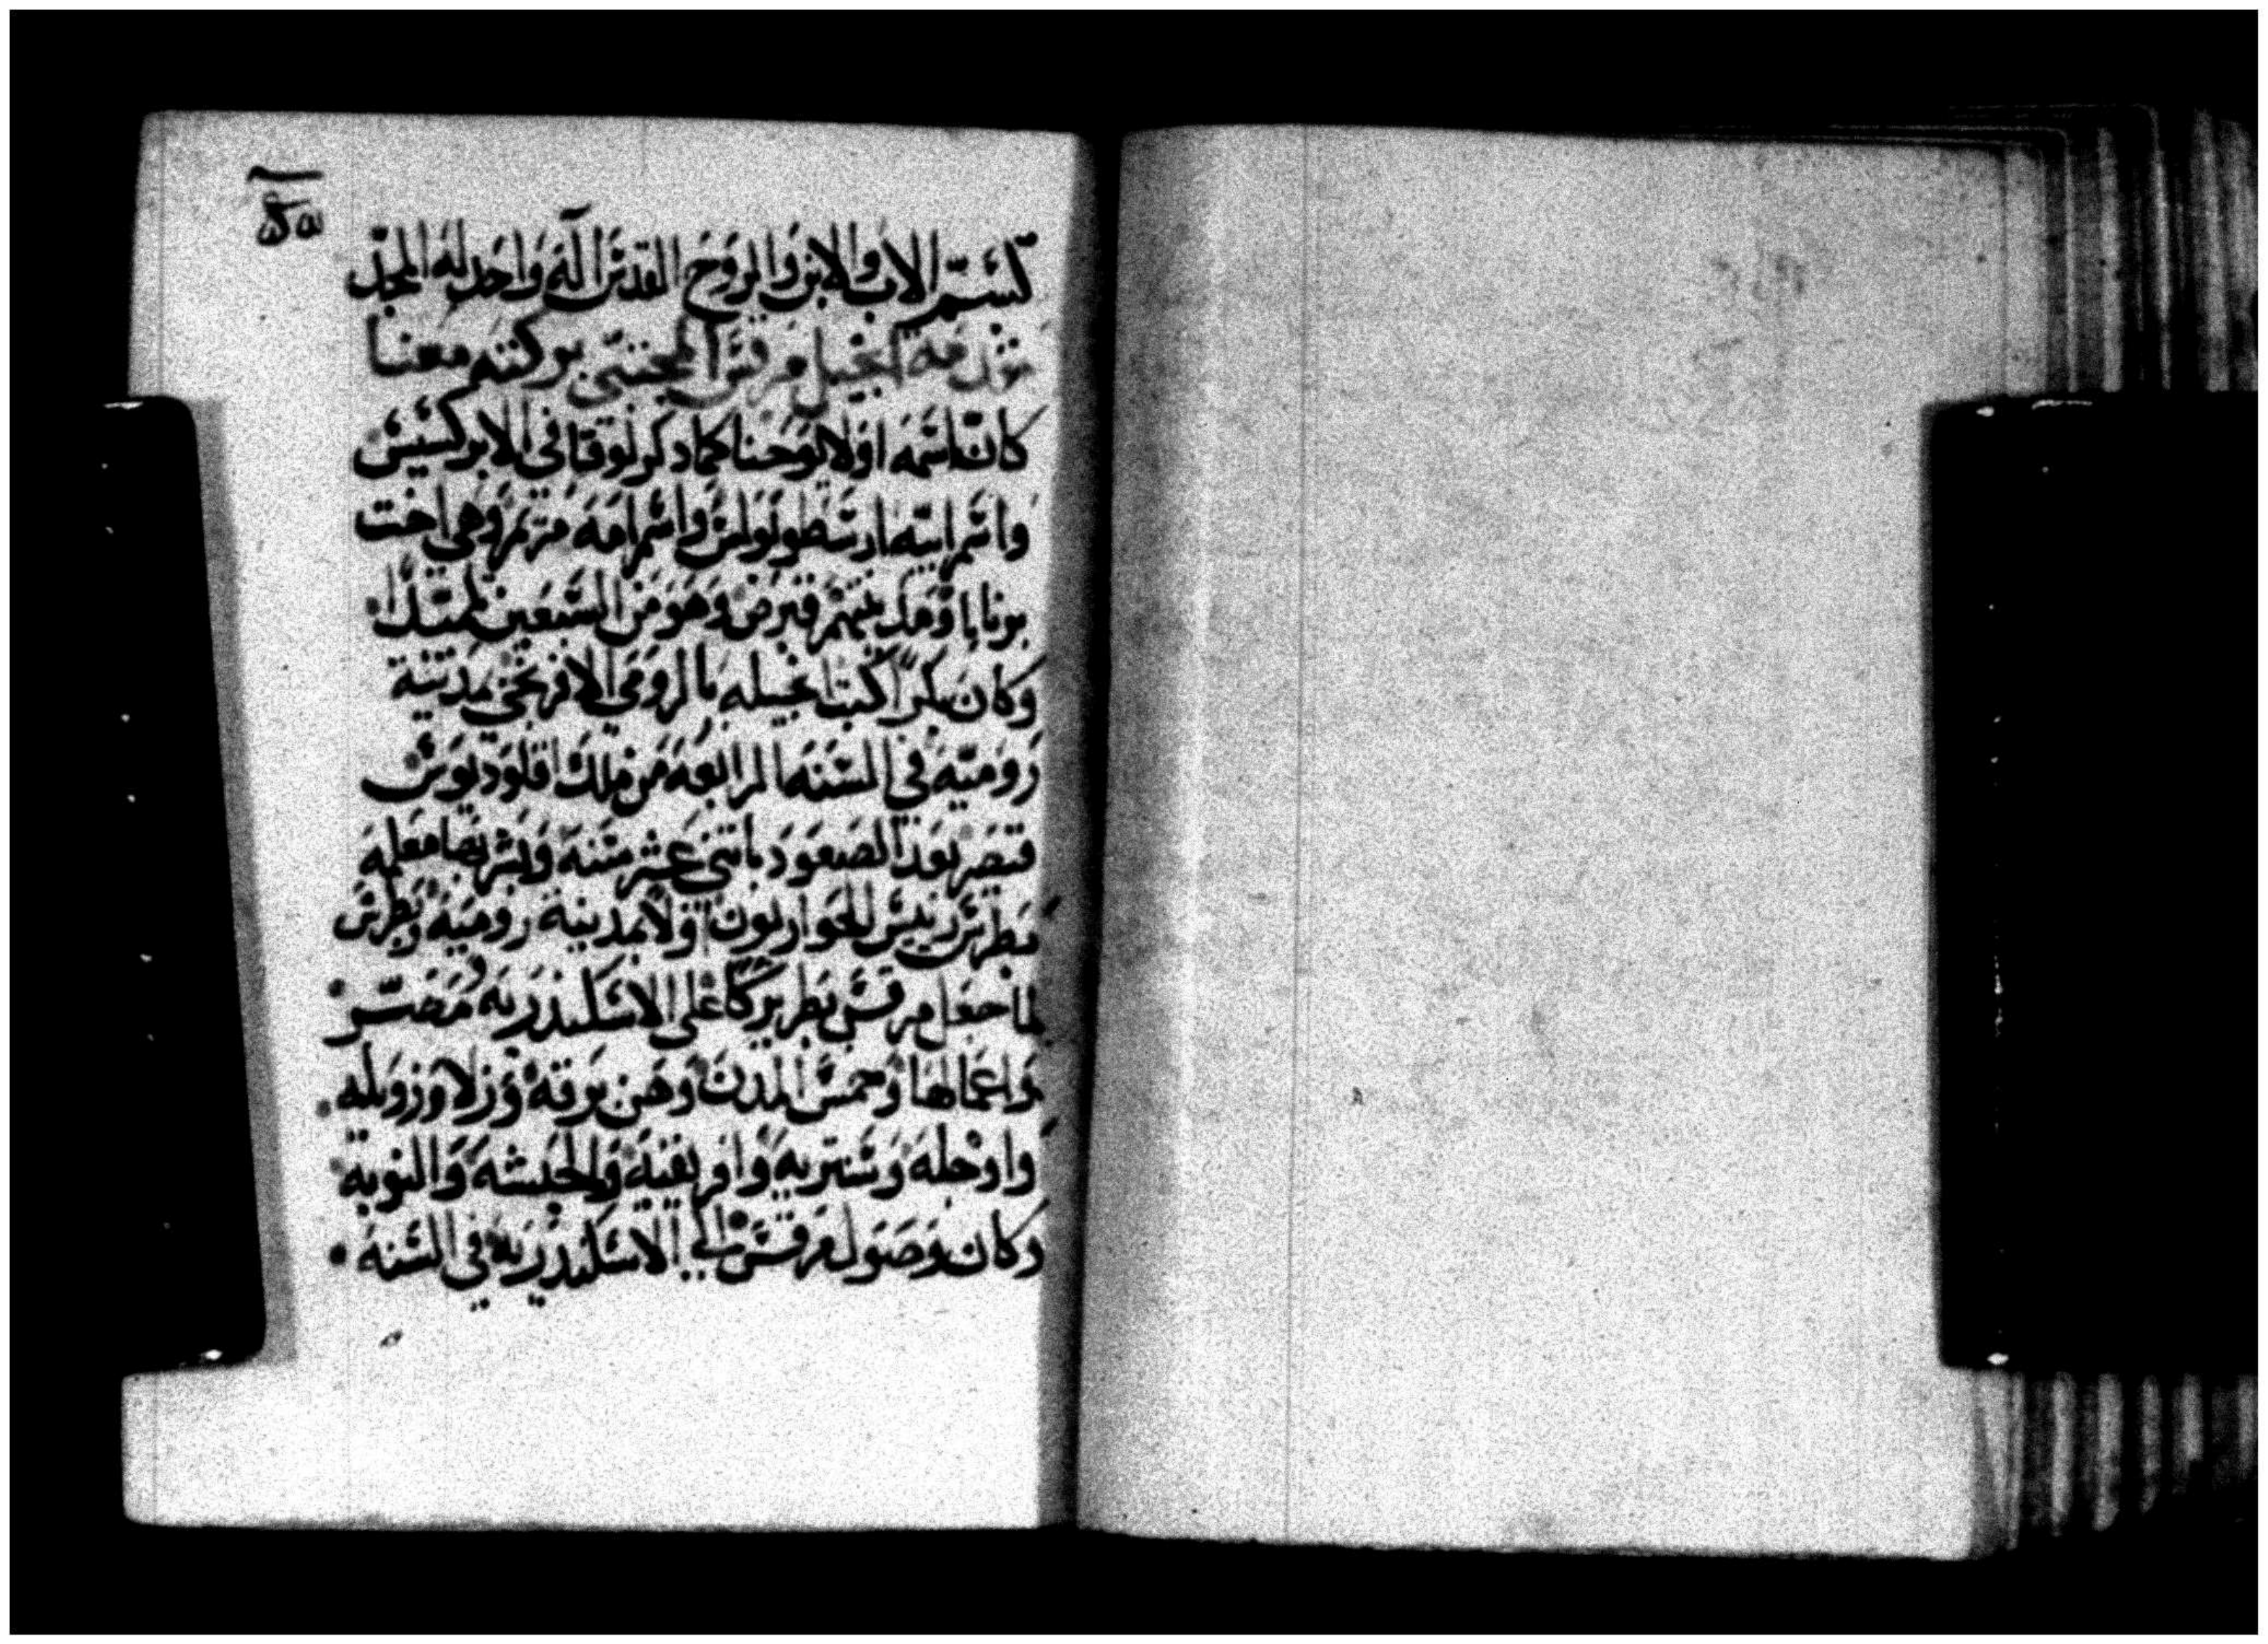 بسم الاب والابن والروح القدس اله واحد له المجد
تقدمة انجيل مرقس المجتبى بركته معنا
كان اسمه اولا يوحنا كما دكر لوقا في الابركسيس
واسم ابيه ارسطونولس واسم امه مريم وهي اخت
برنابا ومدينتهم قبرص وهو من السبعين تلميدا
وكان مكرزا كتب انجيله بالرومي الافرنجي بمدينة
روميه في السنه الرابعه من ملك اقلوديوس
قيصر بعد الصعود باتني عشر سنه وبشر بها معلمه
بطرس رييس الحواريون اولا بمدينة روميه وبطرس
لما جعل مرقس بطريركا على الاسكندريه ومصر
واعمالها وخمس المدن وهن برقه وزلا وزويله
واوجله وسنتريه وافريقيه والحبشه والنوبه
وكان وصول مرقس الي الاسكندريه في السنه